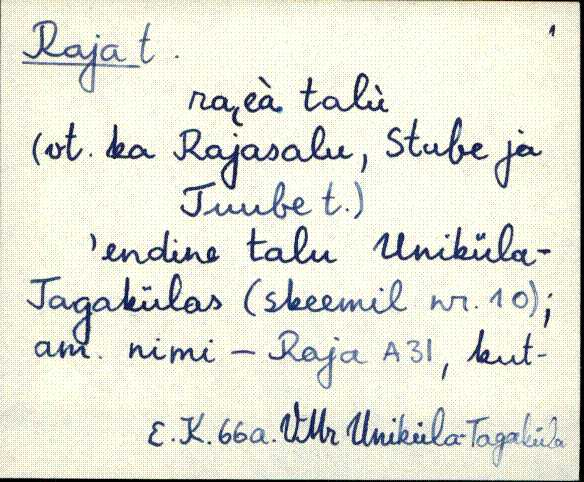 Raja t. 1
talu̇
(vt. ka Rajasalu, Stube ja
Tuube t.)
'endine talu Uniküla-
Tagakülas (skeemil nr. 10);
am. nimi – Raja A31, kut-
E.K. 66a. VMr Uniküla-Tagaküla